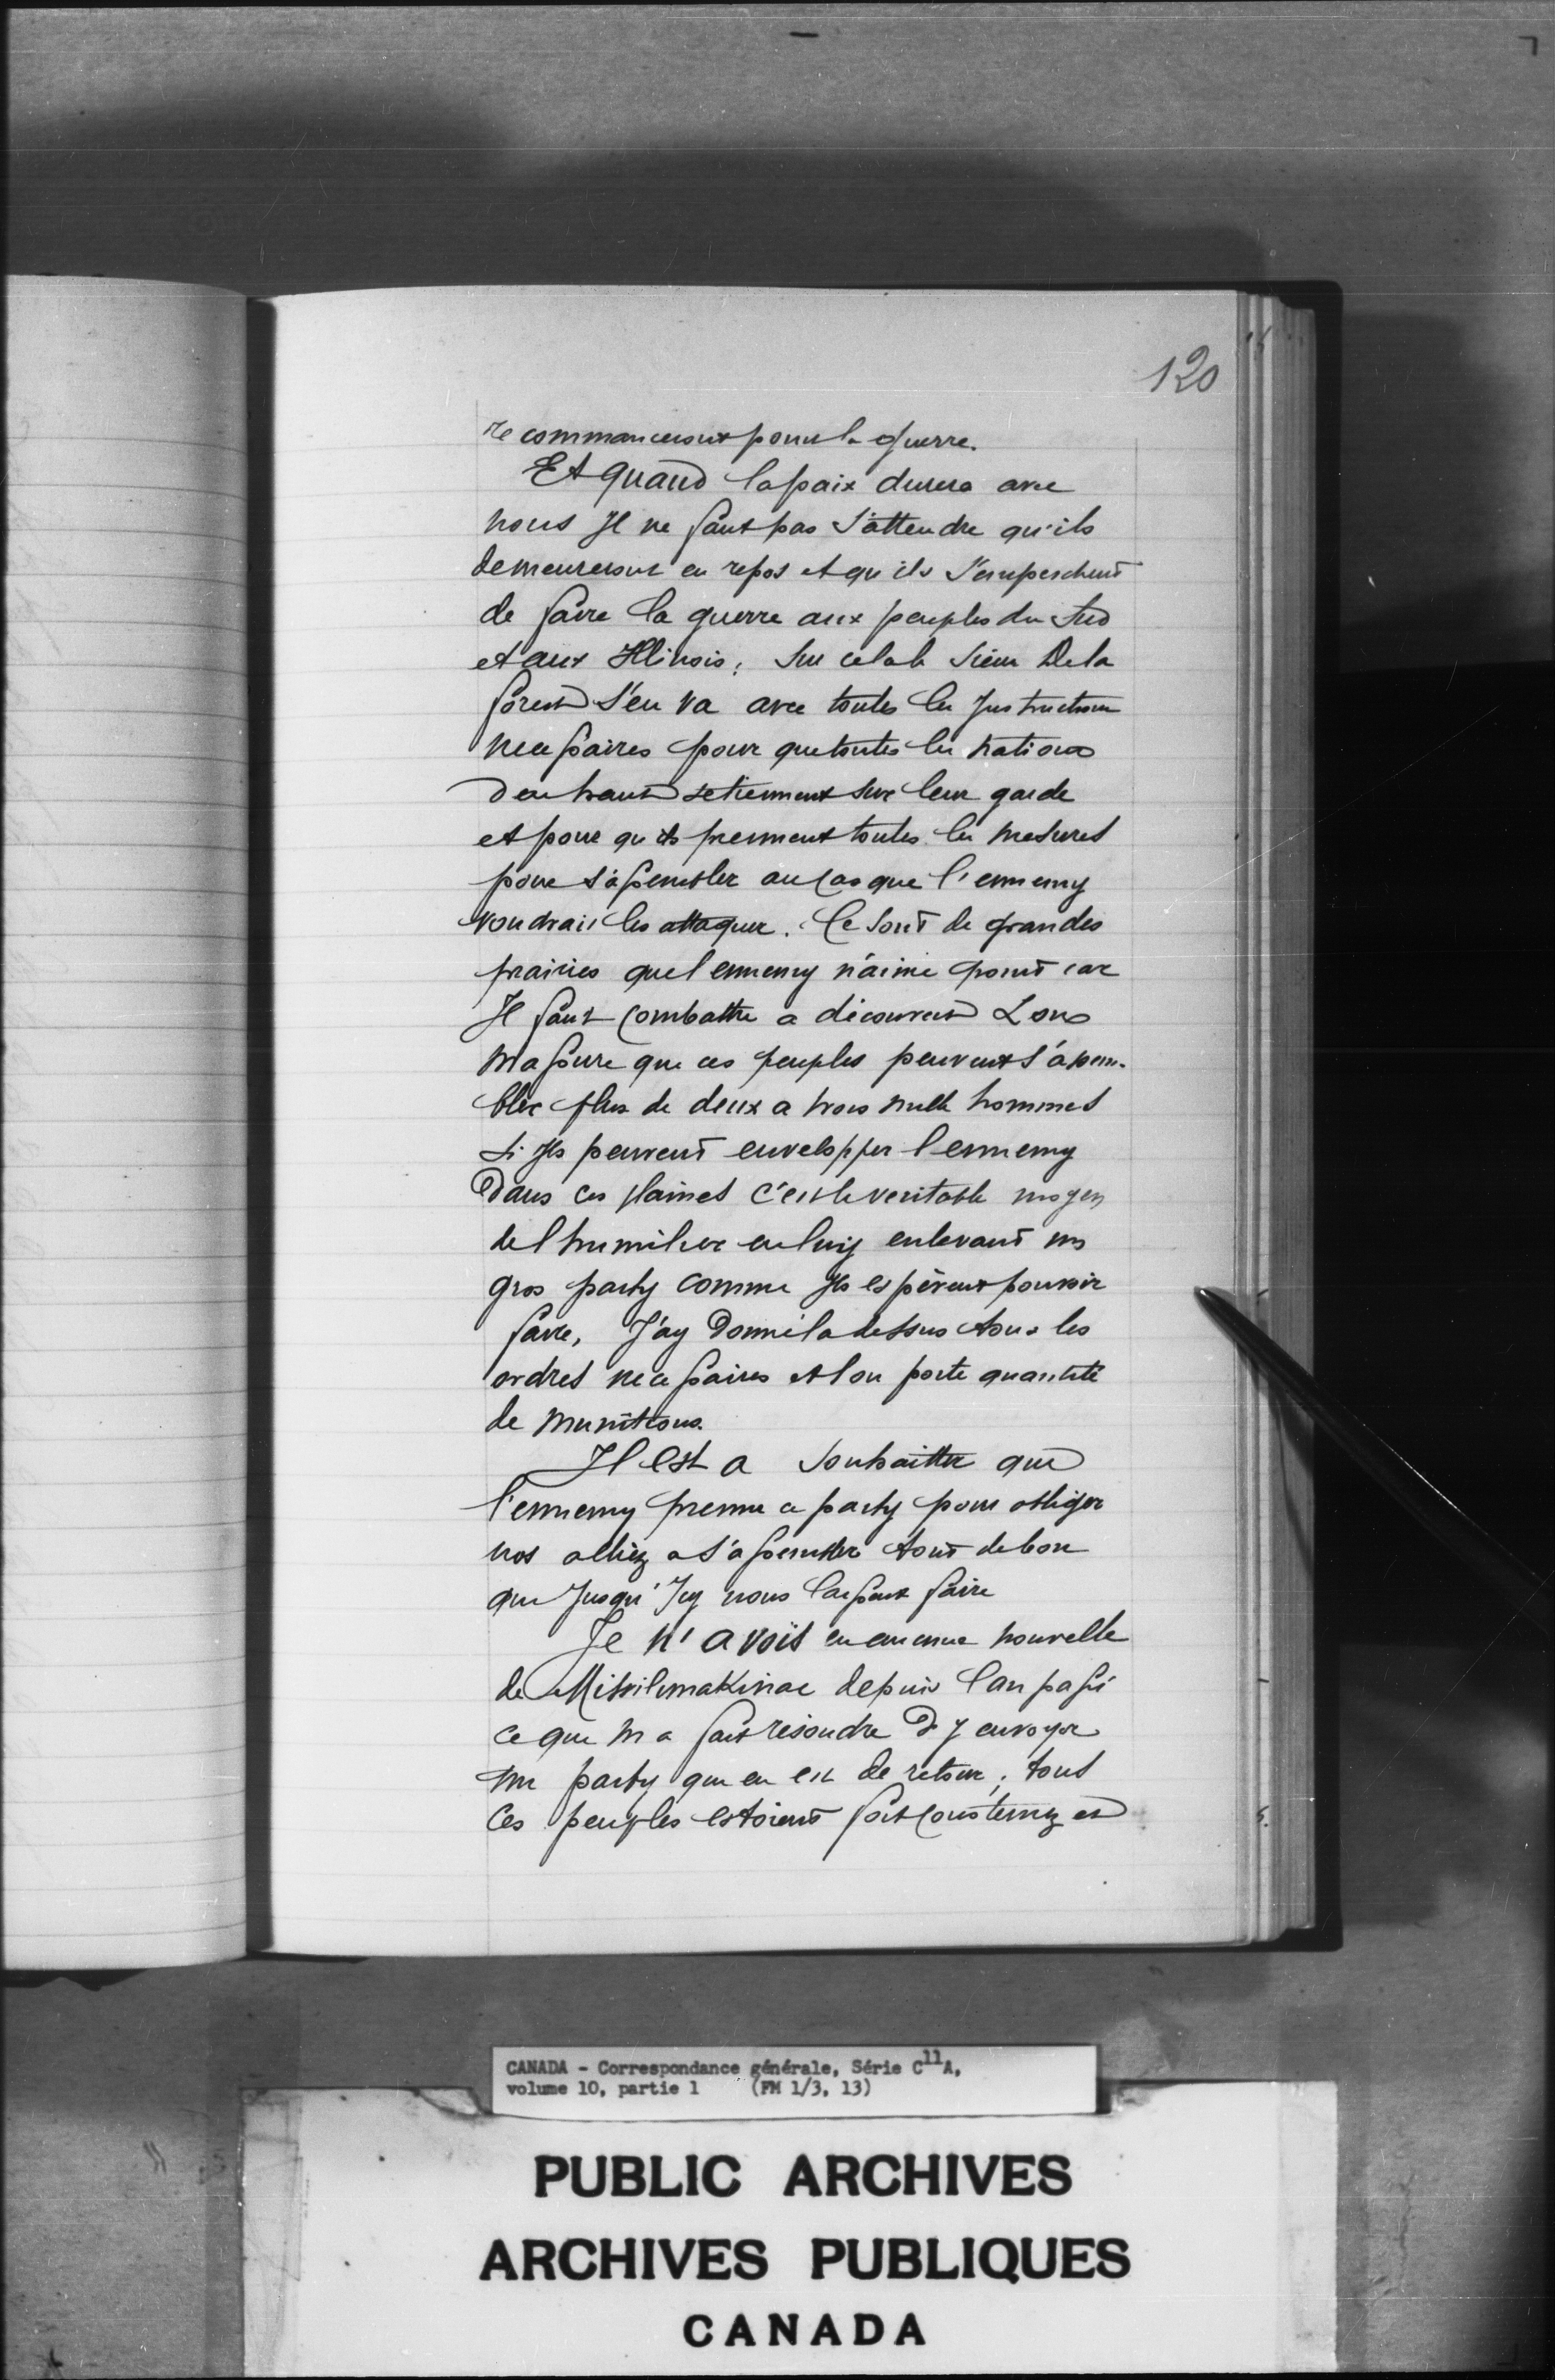 120
recommanceront pour la guerre.
Et quand la paix durera avec
nous Il ne faut pas s'attendre qu'ils
demeureront en repos et qu'ils s'empeschent
de faire la guerre aux peuples du Sud
et aux Illinois; sur cela le sieur De la
forest s'en va avec toutes les Instructions
necessaires pour que toutes les nations
d'en haut se tiennent sur leur garde
et pour qu'ils prennent toutes les mesures
pour s'assembler au cas que l'ennemy
voudrait les attaquer. Ce sont de grandes
prairies que l'ennemy n'aime point car
Il faut combattre a découvert L'on
m'assure que ces peuples peuvent s'assem-
bler plus de deux a trois mille hommes
si Ils peuvent envelopper l'ennemy
Dans ces plaines c'est le veritable moyen
de l'humilier en luy enlevant un
gros party comme Ils espèrent pouvoir
faire, J'ay Donné la dessus tous les
ordres necessaires et l'on porte quantité
de munitions.
Il est a souhaitter que
l'ennemy prenne ce party pour obliger
nos alliez a s'assembler tout de bon
que Jusqu'Icy nous laissent faire
Je n'avois eu aucune nouvelle
de Missilimakinac depuis l'an passé
ce que m'a fait résoudre d'y envoyer
un party qui en est de retour; tous
Ces peuples estoient fort consternez et
CANADA - Correspondance générale, Série C11A,
volume 10, partie 1 (FM 1/3, 13)
PUBLIC ARCHIVES
ARCHIVES PUBLIQUES
CANADA